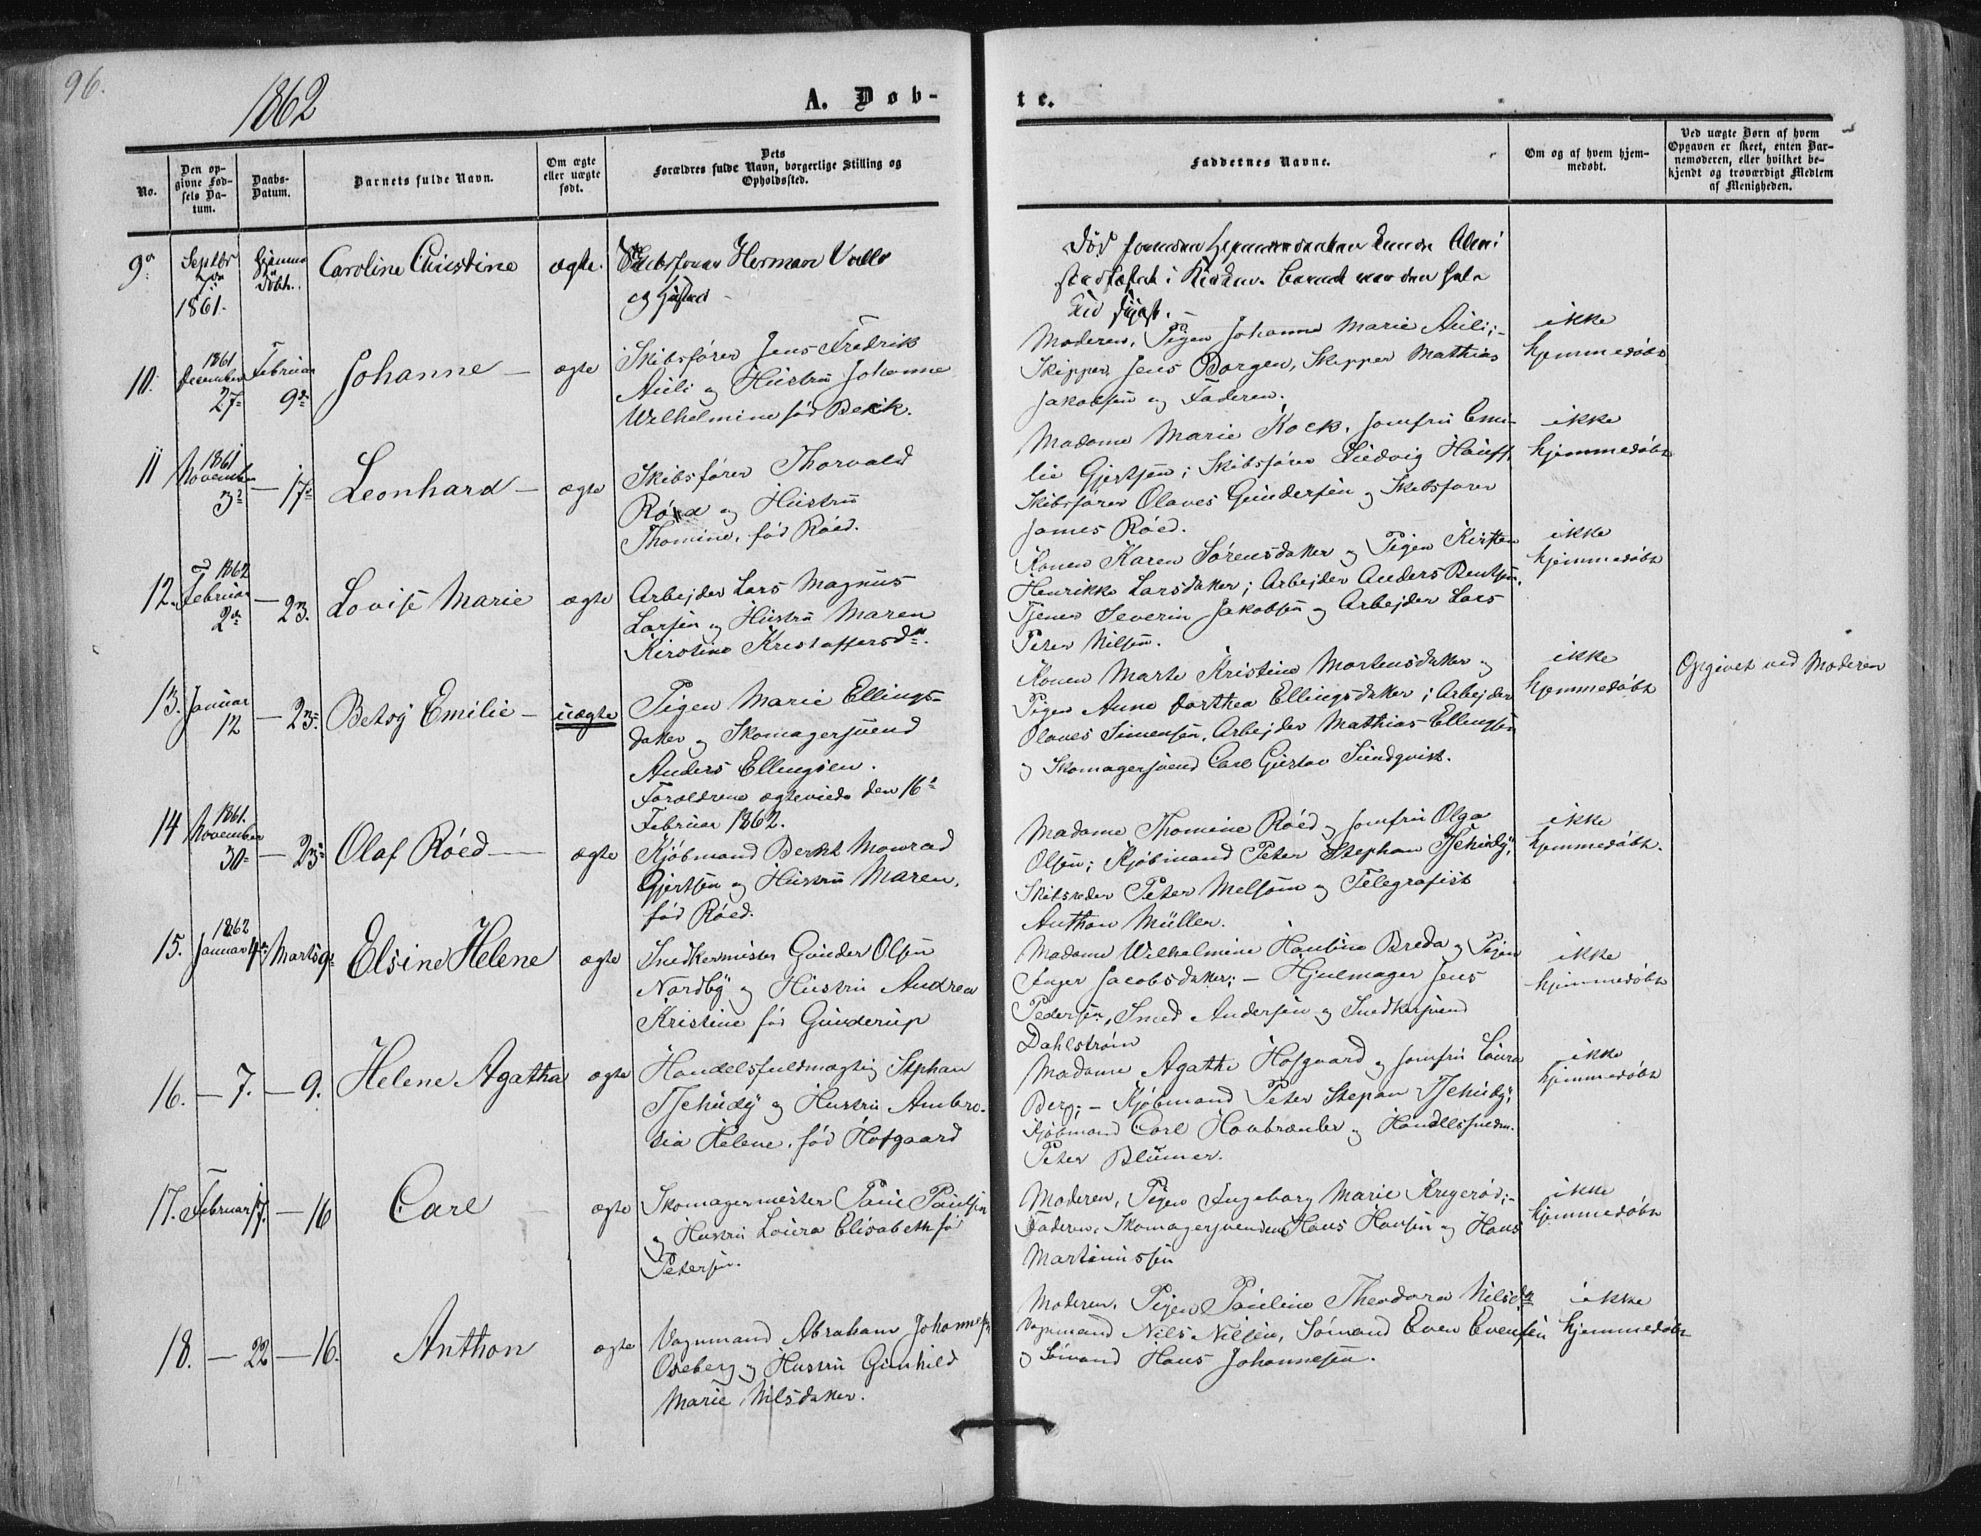 96.
1862
A. Døb-
te.
No.
Den op-
givne Fød-
sels Da-
tum.
Daabs-
Datum.
Barnets fulde Navn.
Om ægte
eller uægte
født.
Dets
Forældres fulde Navn, borgerlige Stilling og
Opholdssted.
Faddernes Navne.
Om og af hvem hjem-
medøbt.
Ved uægte Børn af hvem
Opgaven er skeet, enten Bar-
nemoderen, eller hvilket be-
kjendt og troværdigt Medlem
af Menigheden.
9a
Septbr
7de
1861.
Hjemme
døbt.
Caroline Christine
ægte.
Skibsfører Herman
og Hustru
Død forinden
i Kirken. Barnet var den
Tid
10.
1861
December
27
Februar
9de
Johanne
ægte
Skibsfører Jens Fredrik
Auli og Hustru Johanne
Wilhelmine fød Beck.
Moderen, Pigen Johanne Marie Auli;
Skipper Jens Borgen, Skipper Mathias
Jakobsen og Faderen.
ikke
hjemmedøbt
11
1861
November
3de
— 17de
Leonhard
ægte
Skibsfører Thorvald
Røed og Hustru
Thomine, fød Røed.
Madame Marie Kock, Jomfru Emi-
lie Gjertsen; Skibsfører Ludvig Hauff,
Skibsfører Olaves Gundersen og Skibsfører
James Røed.
ikke
hjemmedøbt
12
1862
Februar
2de
— 23.
Lovise Marie
ægte
Arbejder Lars Magnus
Larsen og Hustru Maren
Kirstine Kristoffersdr.
Konen Karen Sørensdatter og Pigen Kirsten
Henrikke Larsdatter; Arbejder Anders Bentsen,
Tjener Severin Jakobsen og Arbejder Lars
Peter Nilsen.
ikke
hjemmedøbt
13.
Januar
12
— 23
Betsy Emilie
uægte
Pigen Marie Ellings-
datter og Skomagersvend
Anders Ellingsen.
Forældrene ægteviede den 16de
Februar 1862.
Konen Marte Kristine Mortensdatter og
Pigen Anne Dorthea Ellingsdatter; Arbejder
Olaves Simensen, Arbejder Mathias Ellingsen
og Skomagersvend Carl Gustav Sundqvist.
ikke
hjemmedøbt
Opgivet ved Moderen
14
1861.
November
30
— 23
Olaf Røed
ægte
Kjøbmand Bernt Monrad
Gjertsen og Hustru Maren,
fød Røed.
Madame Thomine Røed og Jomfru Olga
Olsen; Kjøbmand Peter Stephan Tschudy,
Skibsreder Peter Melsom og Telegrafist
Anthon Müller.
ikke
hjemmedøbt.
15.
1862
Januar 4de
Marts 9de
Elsine Helene
ægte
Snedkermester Gunder Olsen
Nordby og Hustru Andrea
Kristine fød Gunderup
Madame Wilhelmine Hansine Breda og Pigen
Inger Jacobsdatter; — Hjulmager Jens
Pedersen, Smed Andersen og Snedkersvend
Dahlstrøm
ikke
hjemmedøbt
16.
— 7.
— 9.
Helene Agatha
ægte
Handelsfuldmægtig Stephan
Tschudy og Hustru Ambro-
sia Helene, fød Hofgaard
Madame Agathe Hofgaard og Jomfru Laura
Berg; — Kjøbmand Peter Stepan Tschudy,
Kjøbmand Carl Hornbrænder og Handelsfuldm.
Peter Blumer.
ikke
hjemmedøbt
17.
Februar 17.
— 16
Carl
ægte
Skomagermester Paul Paulsen
og Hustru Laura Elisabeth fød
Petersen.
Moderen, Pigen Ingeborg Marie Krygerød;
Faderen, Skomagersvendene Hans Hansen og Hans
Martinussen
ikke
hjemmedøbt
18.
— 22
— 16.
Anthon
ægte
Vognmand Abraham Johannesen
Oseberg og Hustru Gunhild
Marie Nilsdatter.
Moderen, Pigen Pauline Theodora Nilsdtr
Vognmand Nils Nilsen, Sømand Even Evensen
og Sømand Hans Johannesen.
ikke
hjemmedøbt